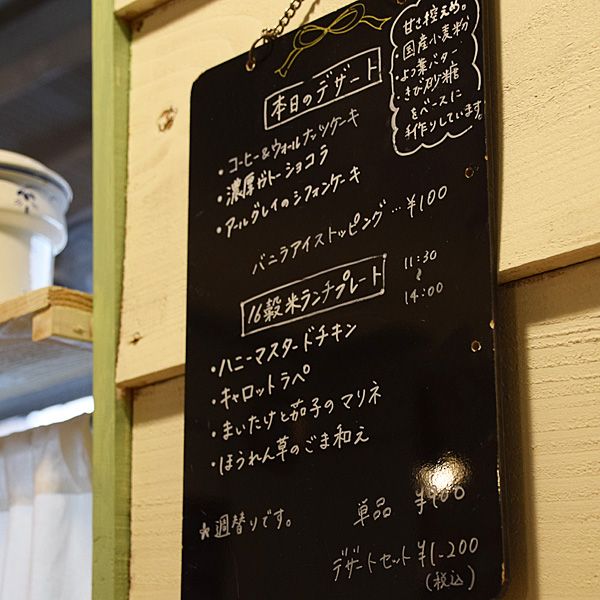 本日のデザート
・コーヒー&ウォールナッツケーキ
・濃厚ガトーショコラ
・アールグレイのシフォンケーキ
バニラアイストッピング…¥100
甘さ控えめ。
・国産小麦粉
・よつ葉バター
・きび砂糖
をベースに
手作りしています。
16穀米ランチプレート
11:30
~
14:00
・ハニーマスタードチキン
・キャロットラペ
・まいたけと茄子のマリネ
・ほうれん草のごま和え
★週替りです。
単品 ¥900
デザートセット ¥1-200
(税込)